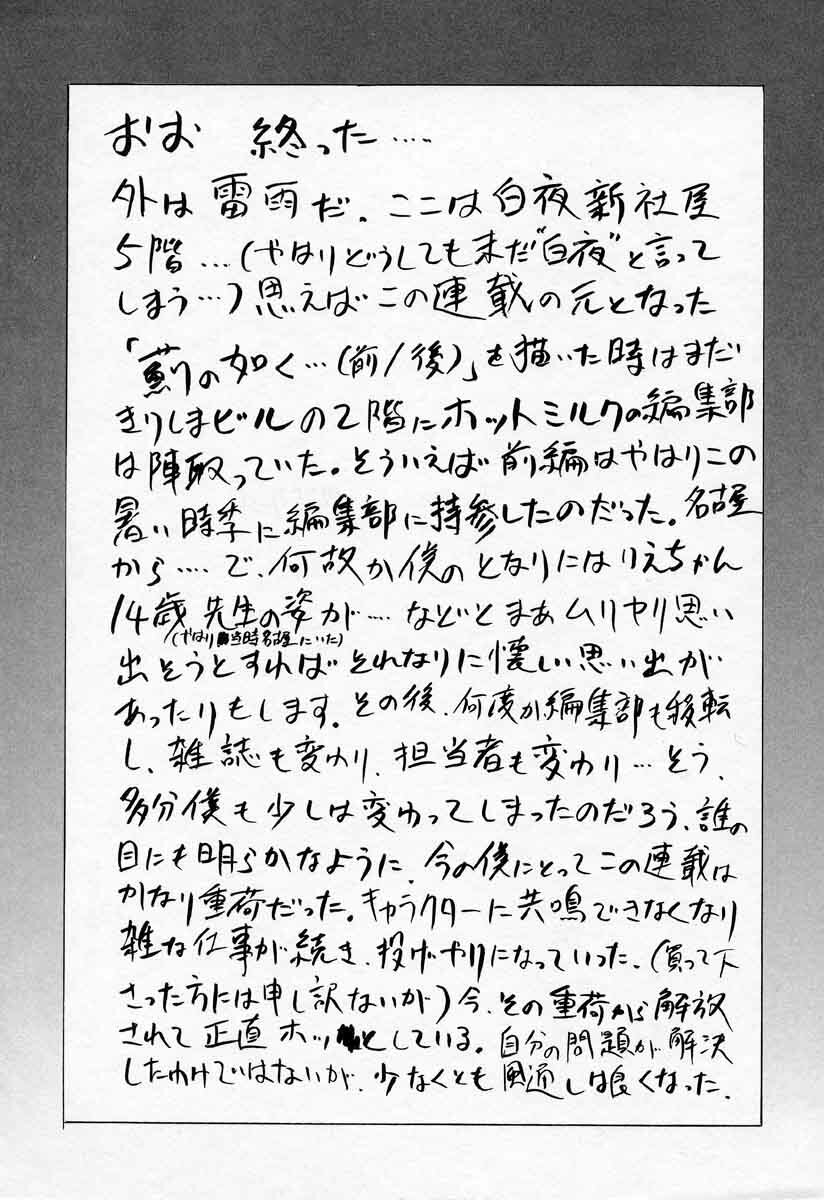 おお 終った‥‥
外は雷雨だ．ここは白夜新社屋
5階…(やはりどうしてもまだ"白夜"と言って
しまう…)思えばこの連載の元となった
「薊の如く…(前/後)」を描いた時はまだ
きりしまビルの2階にホットミルクの編集部
は陣取っていた。そういえば前編はやはりこの
暑い時季に編集部に持参したのだった。名古屋
から‥‥で、何故か僕のとなりにはりえちゃん
14歳先生の姿が…などとまぁムリヤリ思い
(やはり当時名古屋にいた)
出そうとすればそれなりに懐しい思い出が
あったりもします。その後、何度か編集部も移転
し、雑誌も変わり、担当者も変わり…そう、
多分僕も少しは変わってしまったのだろう、誰の
目にも明らかなように、今の僕にとってこの連載は
かなり重荷だった。キャラクターに共鳴できなくなり
雑な仕事が続き、投げやりになっていった、(買って下
さった方には申し訳ないが)今、その重荷から解放
されて正直ホッとしている。自分の問題が解決
したわけではないが、少なくとも風通しは良くなった．